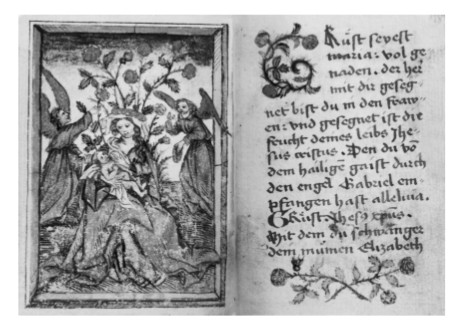 Grüst seyest
maria: vol ge
naden. der her
mit dir geseg-
net bist du in den fraw-
en: vnd gesegnet ist die
frucht deines leibs Jhe-
sus cristus. Den du vō
dem hailigē gaist durch
den engel Gabriel em-
pfangen hast alleluia.
Grüst. Jhesꝯ xpus.
Mit dem du schwanger
dein mumen Elizabeth